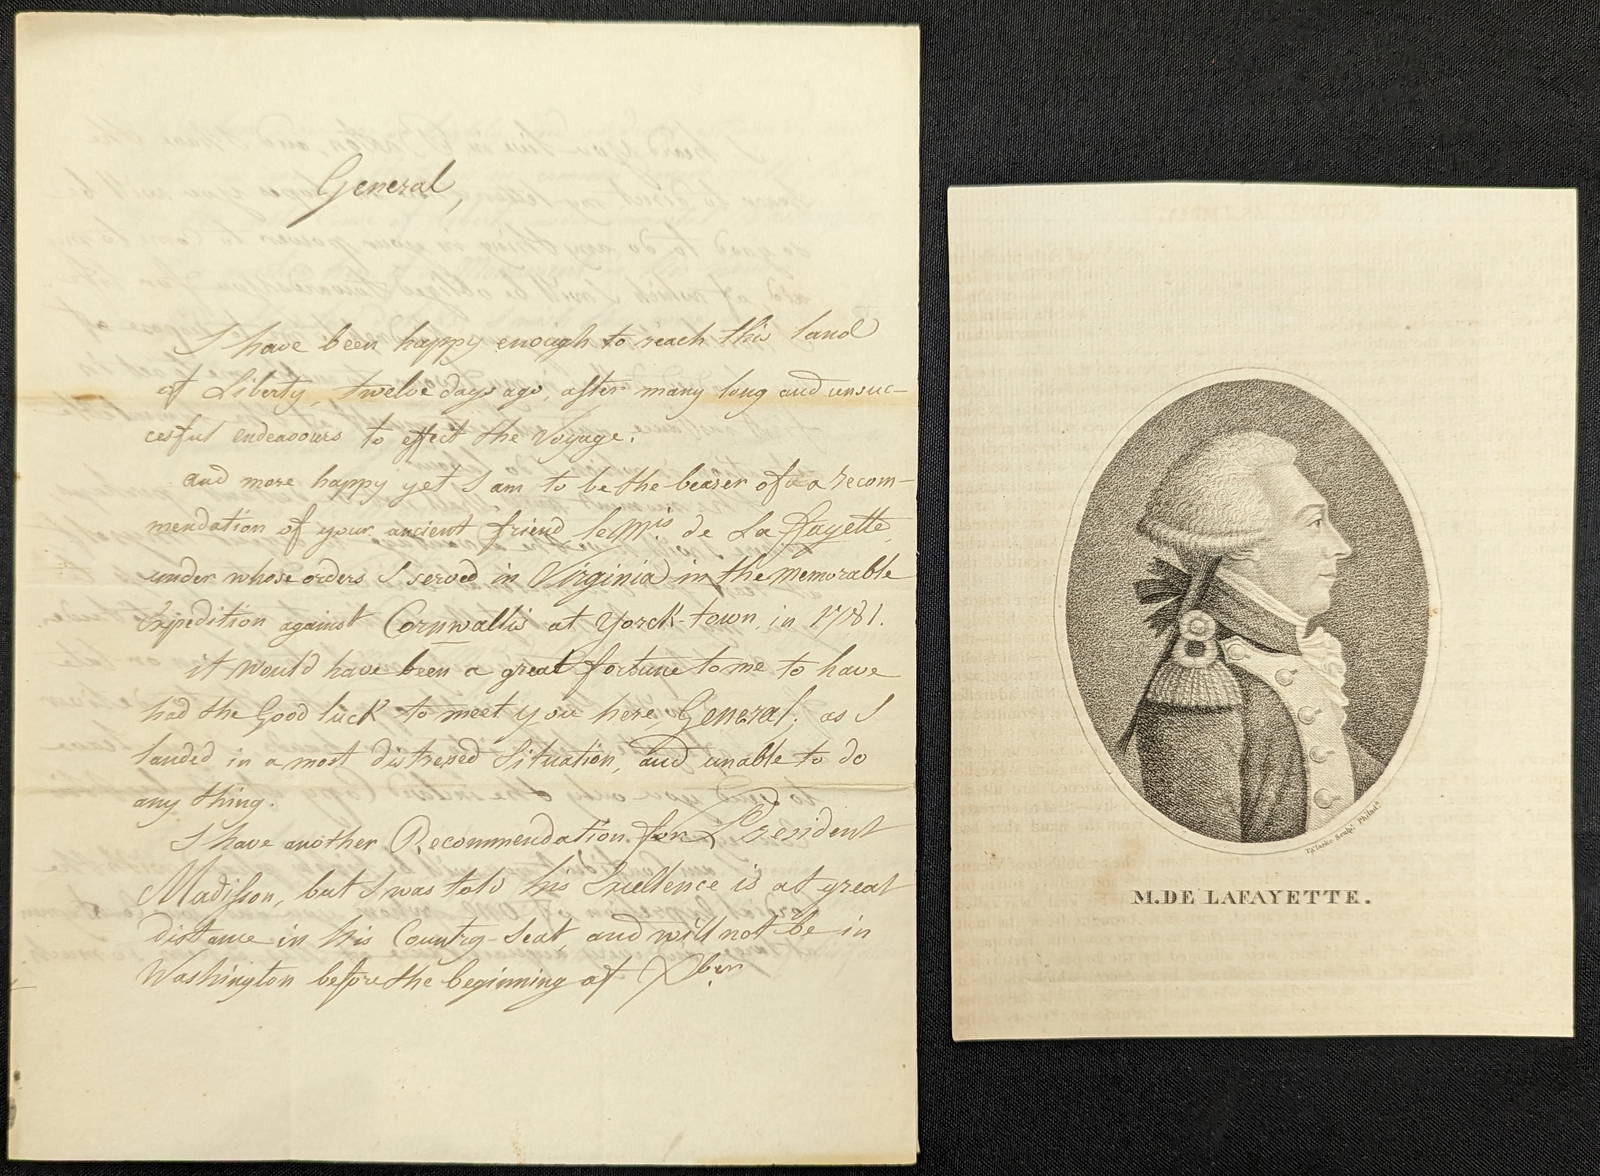 General,
I have been happy enough to reach this land
of Liberty, twelve days ago, after many long and unsuc-
cesful endeavours to effect the Voyage.
and more happy yet I am to be the bearer of a recom-
mendation of your ancient friend, le Mis. de La Fayette,
under whose orders I served in Virginia in the memorable
Expedition against Cornwallis at York-town, in 1781.
it would have been a great fortune to me to have
had the Good luck to meet you here General; as I
landed in a most distressed Situation, and unable to do
any thing.
I have another Recommendation for President
Madisson, but I was told his Excellence is at great
distance in his Country-Seat, and will not be in
Washington before the beginning of Xber.
T. Clarke Sculpt. Philada.
M. DE LAFAYETTE.